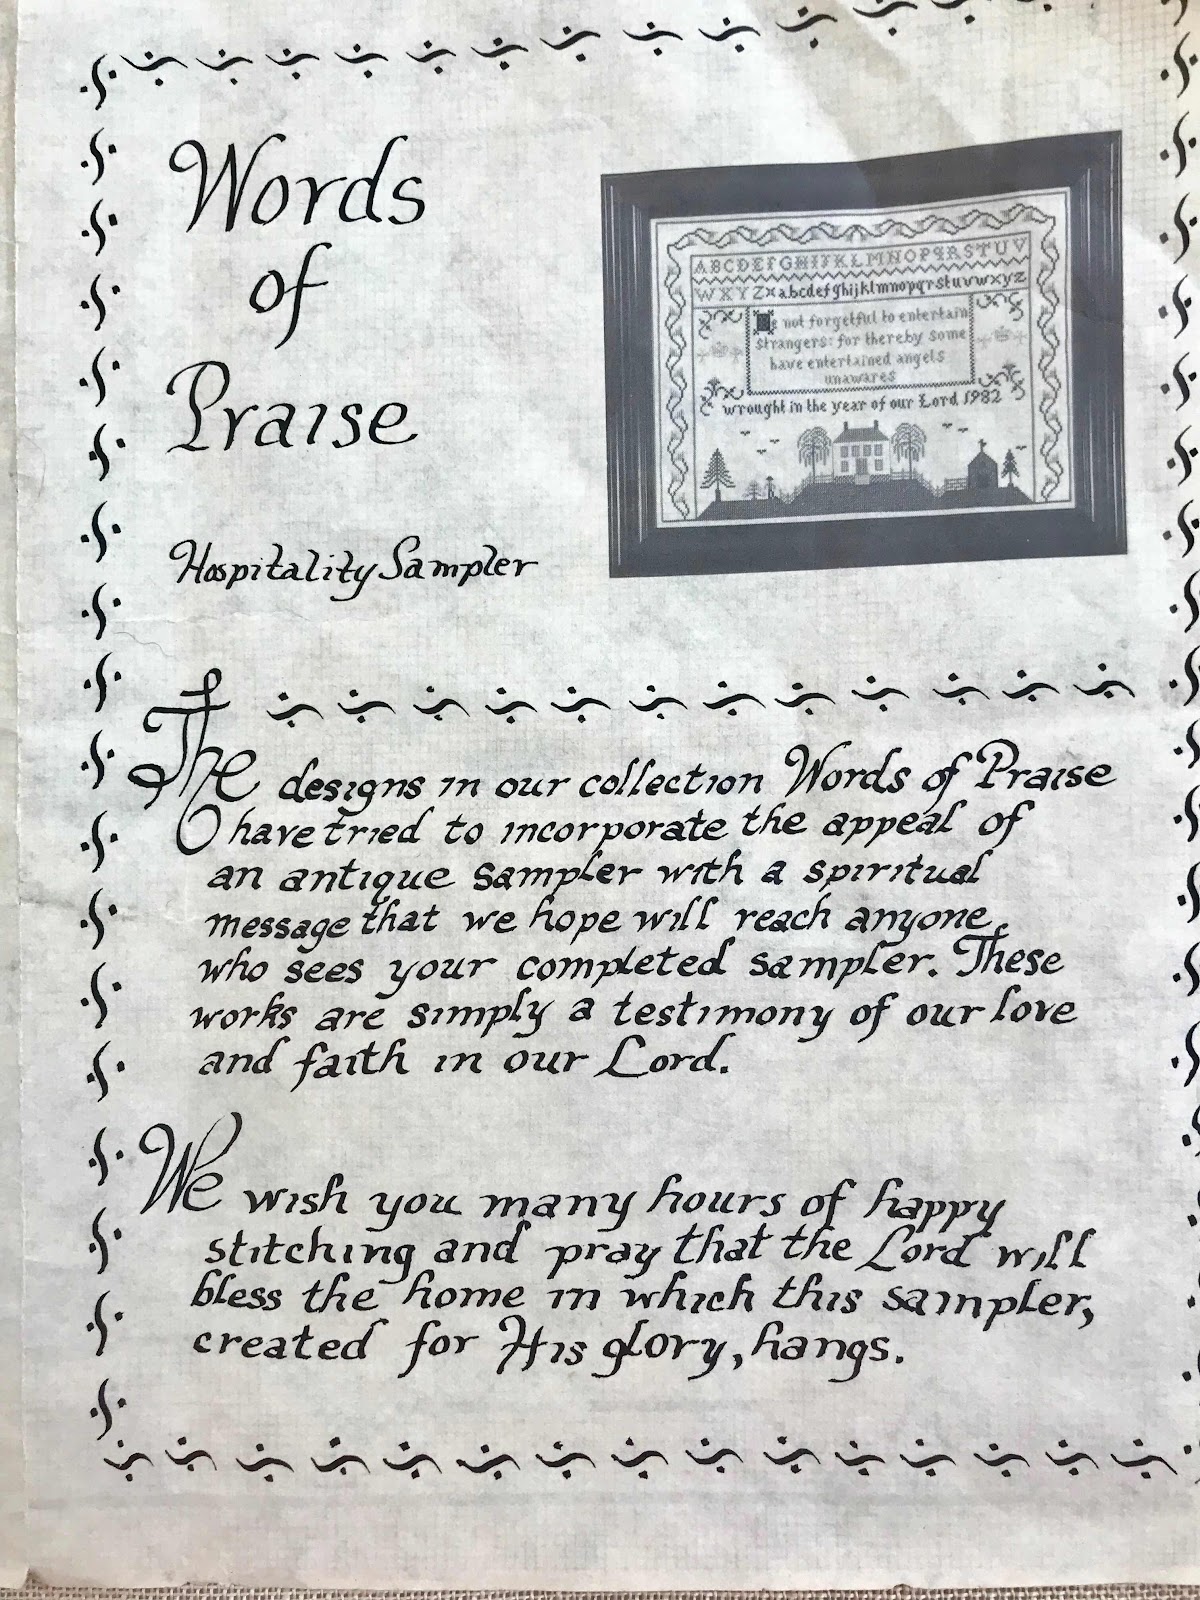 Words
of
Praise
Hospitality Sampler
ABCDEFGHIJKLMNOPQRSTUV
WXYZ abcdefghijklmnopqrstuvwxyz
Be not forgetful to entertain
strangers: for thereby some
have entertained angels
unawares
wrought in the year of our Lord 1982
The designs in our collection Words of Praise
have tried to incorporate the appeal of
an antique sampler with a spiritual
message that we hope will reach anyone
who sees your completed sampler. These
works are simply a testimony of our love
and faith in our Lord.
We wish you many hours of happy
stitching and pray that the Lord will
bless the home in which this sampler,
created for His glory, hangs.